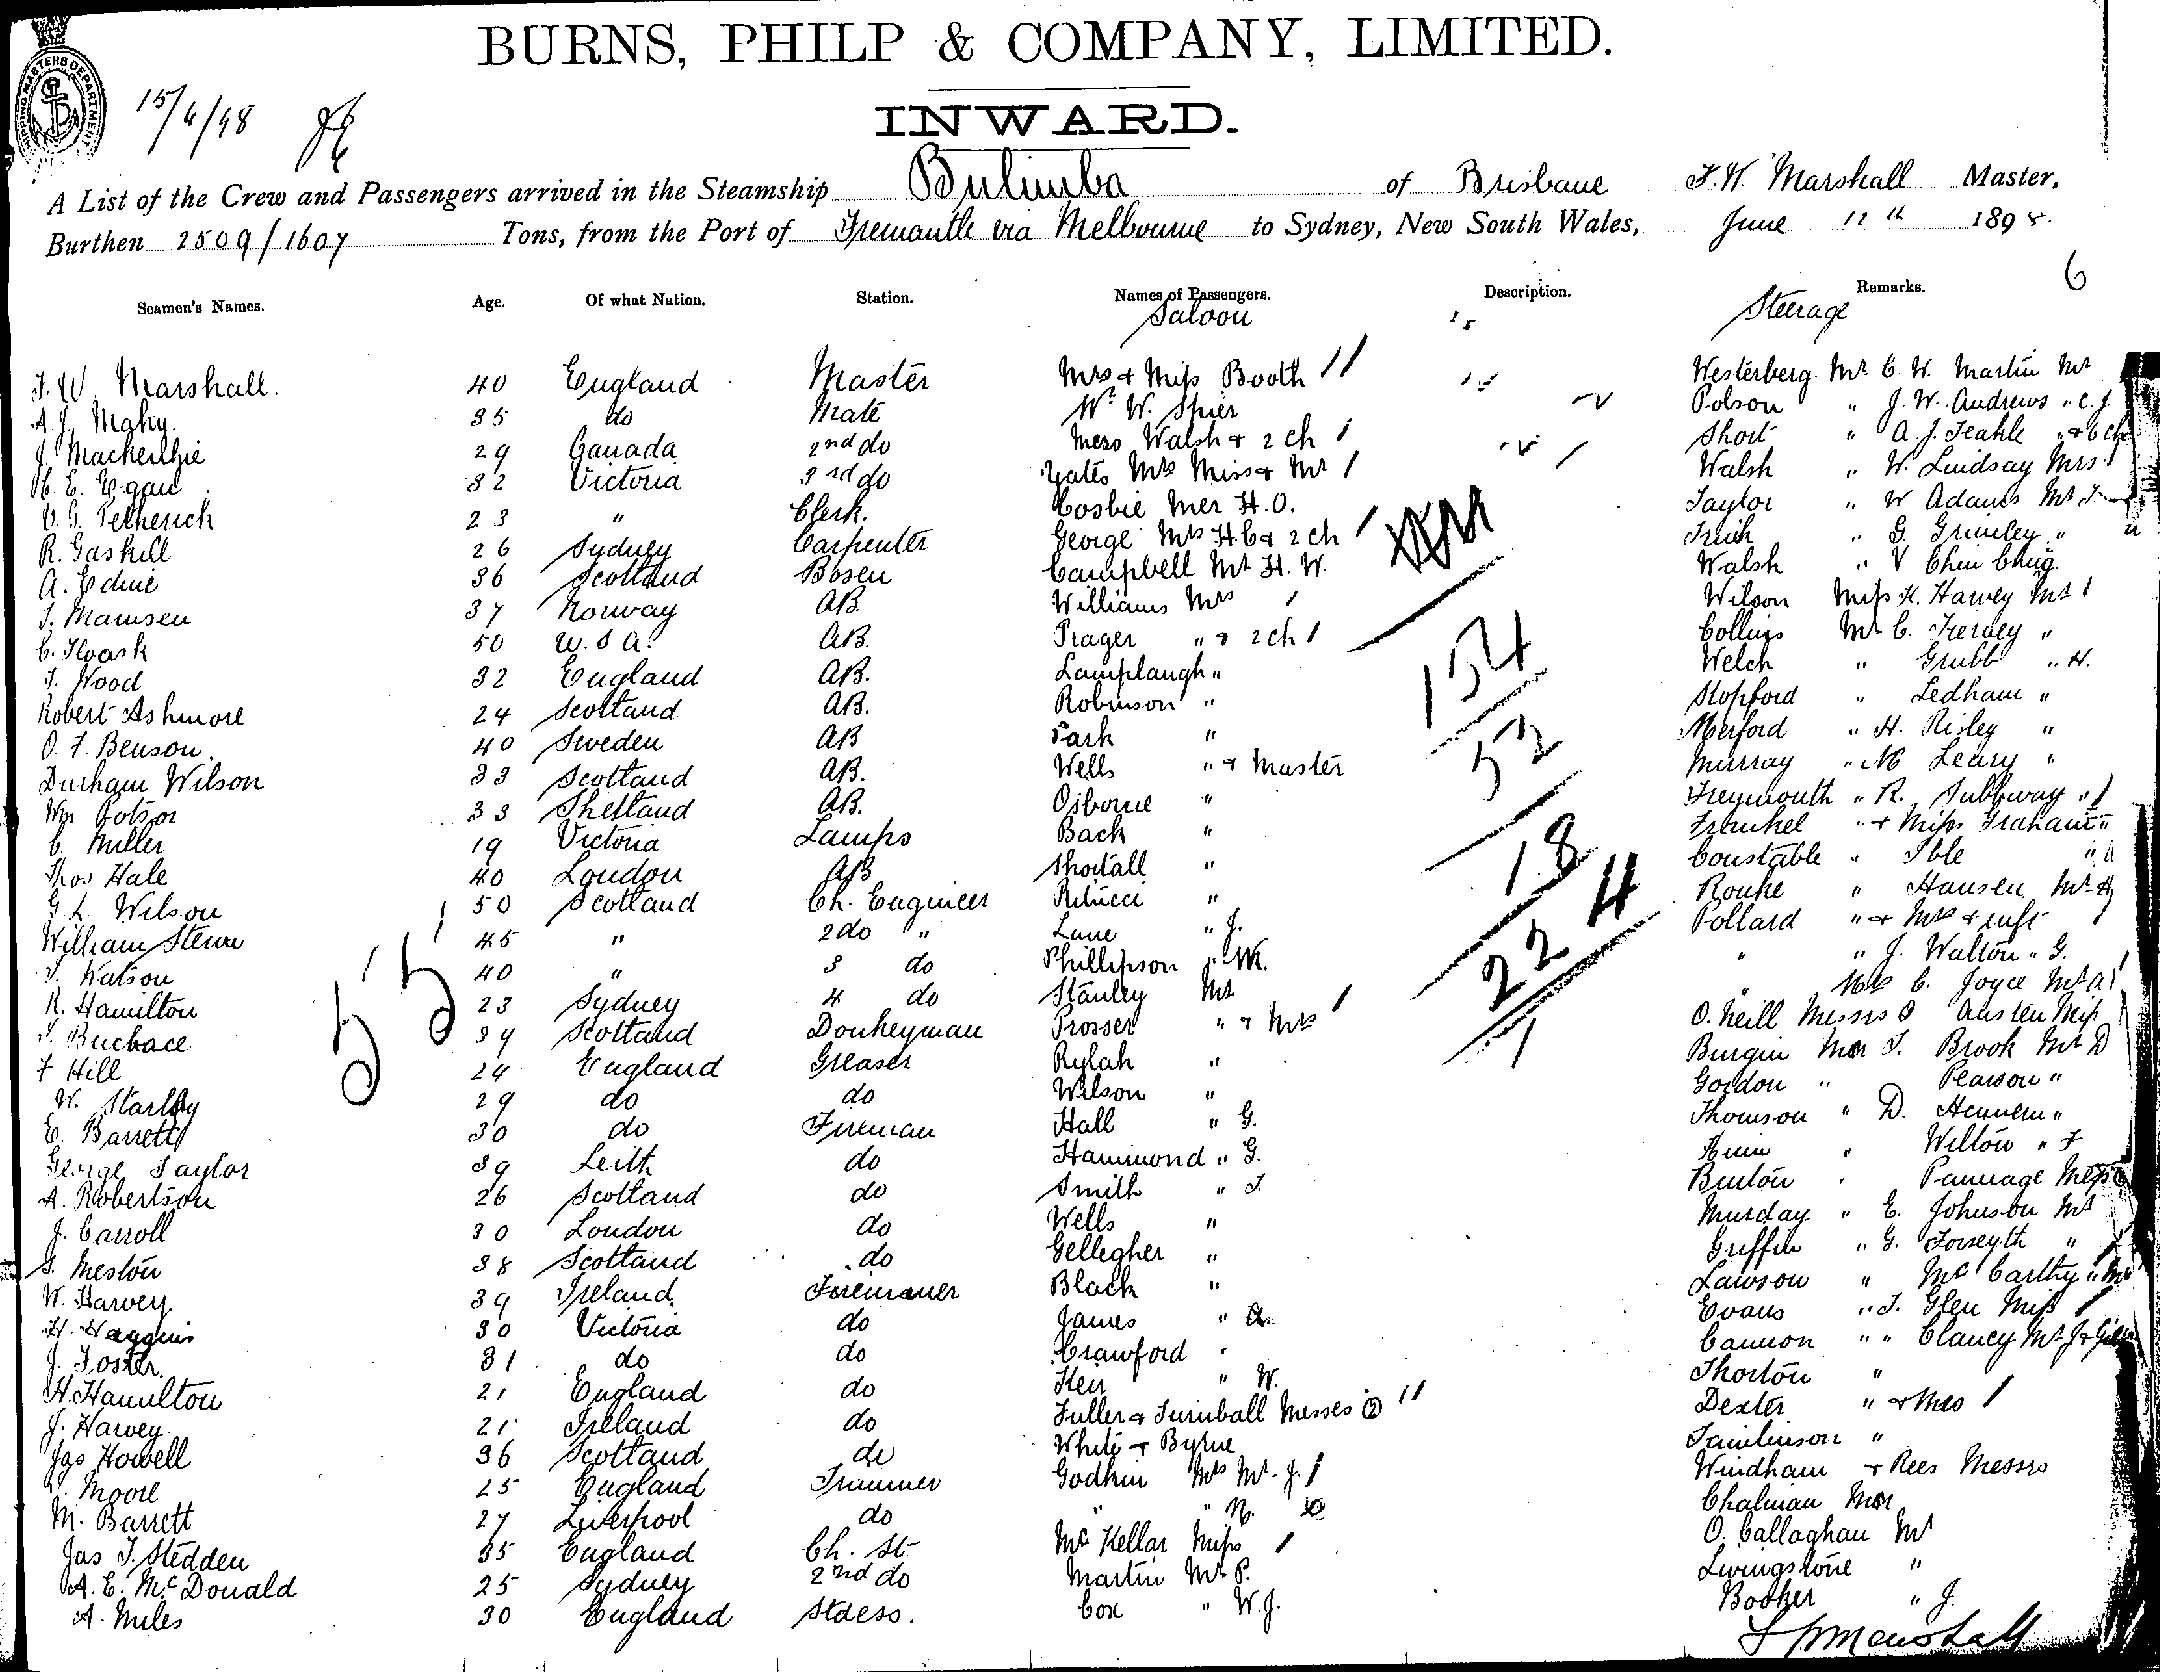 BURNS, PHILP & COMPANY, LIMITED.
INWARD.
15/6/98
A List of the Crew and Passengers arrived in the Steamship Bulimba of Brisbane F. W. Marshall Master,
Burthen 2509/1607 Tons, from the Port of Fremantle via Melbourne to Sydney, New South Wales, June 12th 1898.
6
Seamen's Names. Age. Of what Nation. Station. Names of Passengers. Description. Remarks.
Saloon Steerage
F. W. Marshall. 40 England Master Mrs & Miss Booth Westerberg Mr C. W. Martin Mr
A. J. Mahy. 35 do Mate W. Spier Polson " J. W. Andrews " C. J.
J. Mackenzie 29 Canada 2nd do Mrs Walsh & 2 ch Short " A. J. Teakle " & 6 ch
H. E. Egan 32 Victoria 3rd do Yates Mrs Miss & Mr Walsh " W. Lindsay Mrs
V. G. Petherick 23 " Clerk. Cosbie H. O. Taylor " W Adams Mr
R. Gaskill 26 Sydney Carpenter George Mrs H C & 2 ch " G. Grimley "
A. Edme 36 Scotland Bosen Campbell Mr H. W. Walsh " V Chin Ching.
T. Mamsen 37 Norway AB. Williams Mrs Wilson Miss K. Harvey Mr
50 U. S A. AB. Prager " & 2 ch Collins Mr C. Tierney "
T. Wood 32 England AB. Lamplaugh " Welch " Grubb " H.
Robert Ashmore 24 Scotland AB. Robinson " Stopford " Ledham "
O. F. Benson 40 Sweden AB Park " Merford " H. Risley "
Durham Wilson 33 Scotland AB. Wells " & Master Murray " M Leary "
Wm Potson 33 Shetland AB. Osborne " Freymouth " R. Subbway "
C. Miller 19 Victoria Lamps Back " Frenkel " & Miss Graham "
Thos Hale 40 London AB Shortall " Constable " Ible "
G L. Wilson 50 Scotland Ch. Engineer " Rouke " Hansen Mr
William Steuve 45 " 2 do " Lane " J. Pollard " & Mrs & inft
T. Watson 40 " 3 do Phillipson " W. " " J. Walton " G.
R. Hamilton 23 Sydney 4 do Stanley Mr " Mrs C. Joyce Mr
34 Scotland Donkeyman Prosser " & Mrs O. Neill Messrs Austen Miss
F Hill 24 England Greaser Rylah " Burgin T. Brook Mr D
W. 29 do do Wilson " Gordon " Pearson "
E. Barrett 30 do Fireman Hall " G. Thomson " D.
George Taylor 39 Leith do Hammond " G. Wilton " F
A. Robertson 26 Scotland do Smith " T. Burton " Pannage
J. Carroll 30 London do Wells " Munday " E. Johnson Mr
S. Meston 38 Scotland do Gellegher " Griffin " G. Forseyth "
W. Harvey 39 Ireland Black " Lawson " McCarthy "
H. Haggins 30 Victoria do James " Evans " T. Glen Miss
J. Foster 31 do do Crawford " Cannon " " Clancy Mr J &
H. Hamilton 21 England do Kerr " W. Thorton "
J. Harvey 21 Ireland do Fuller & Turnball Messes 2 Dexter " & Mrs
Jas Howell 36 Scotland do White & Byrne Tamlinson "
Moore 25 England Trimmer Godkin Mrs Mr J. Windham & Rees Messrs
M. Barrett 27 Liverpool do " " N. Chalman
Jas T. Stedden 35 England Ch. St. McKellar Miss O. Callaghan Mr
A. E. McDonald 25 Sydney 2nd do Martin Mr P. Livingstone "
A. Miles 30 England Stdess. Cox " W. J. Booker " J.
55
154
52
18
224
1